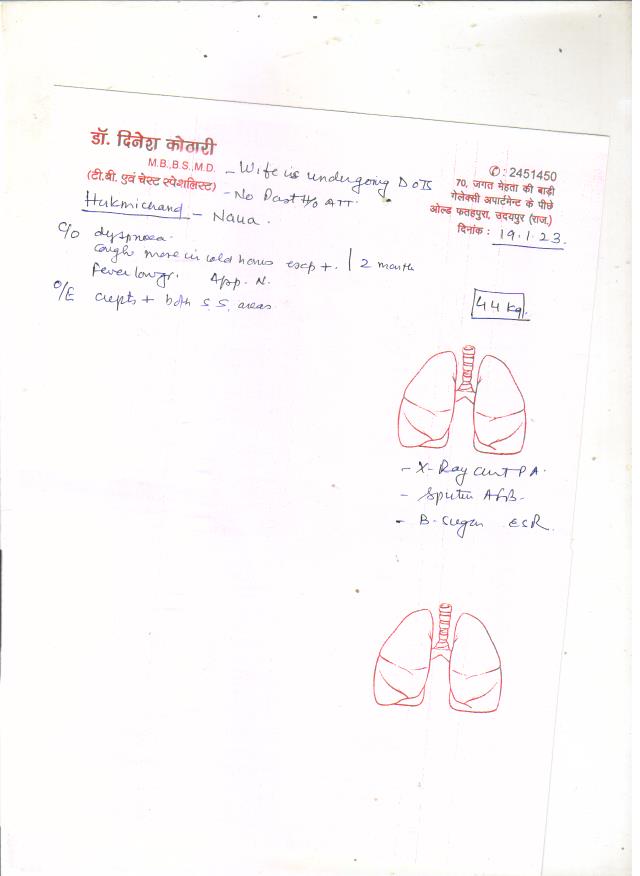 डॉ. दिनेश कोठारी
M.B.,B.S.,M.D.
(टी.बी. एवं चेस्ट स्पेशलिस्ट)
- Wife is undergoing DOTs
- No Past H/o ATT.
✆ : 2451450
70, जगत मेहता की बाड़ी
गेलेक्सी अपार्टमेन्ट के पीछे
ओल्ड फतहपुरा, उदयपुर (राज.)
दिनांक : 19.1.23.
Hukmichand -
C/o dyspnoea.
Cough more in cold hours + / 2 month
Fever low gr. App. N.
O/E crepts + both S.S. areas
44 kg.
- X-Ray chest PA.
- Sputum AFB-
- B-Sugar ESR.